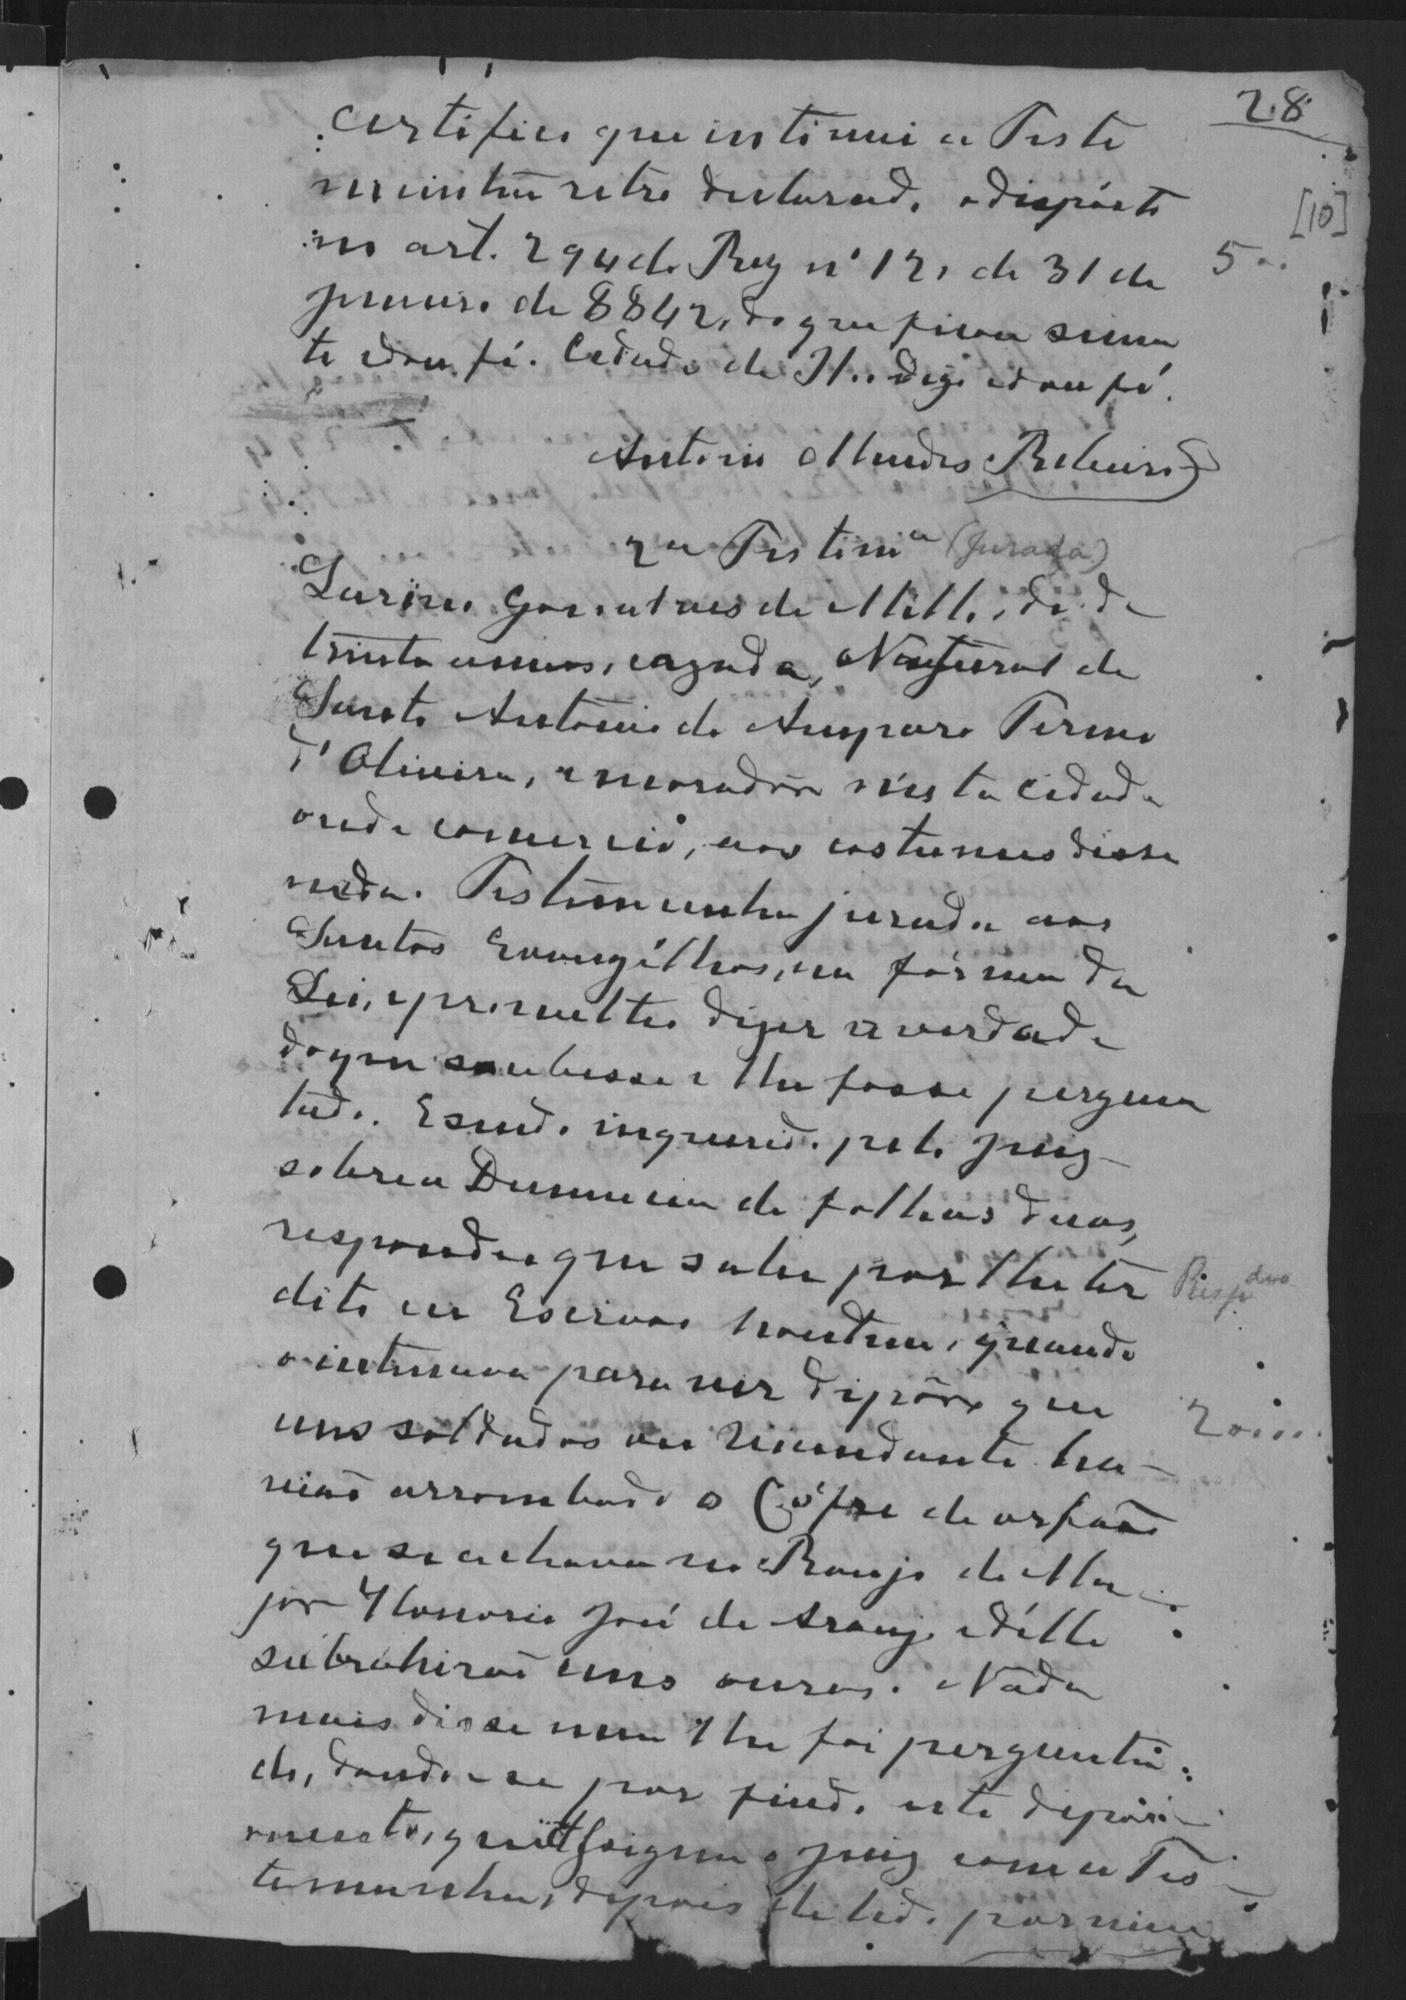 28
Certifico que intimei a Teste
munha retro declarado, o disposto
[10]
no art. 294 do Reg nº 12, de 31 de
5...
janeiro de 8842, do que ficou scien
te e dou fé. Cidade de digo e dou fé.
Antonio Mendes Ribeiro
2ª Testimª (Jurada)
Gonsalves de Mello, id.de
trinta annos, cazado, Natural de
Santo Antonio do Amparo Termo
d'Oliveira, e morador n'esta Cidade
onde comercio, aos costumes disse
nada. Testemunha jurada aos
Santos Evangelhos, na fórma da
Lei, e prometteo dizer a verdade
do que soubesse e lhe fosse pergun
tado. E sendo inquerido pelo Juiz
sobre a Denuncia de folhas duas,
respondeo que sabe por lhe ter
Respdeo
dito eu Escrivão hontem, quando
o intimava para vir depôr, que
20...
uns soldados ou Commandante ha-
vião arrombado o Cófre de orfãos
que se achava no Rancho do Ma-
jor Honorio José de Araujo e d'elle
subtrahirão uns ouros. Nada
mais disse nem lhe foi pergunta-
do, dando-se por findo este depoi-
mento, que assigna o Juiz com a Tes-
temunha, depois de lido por mim